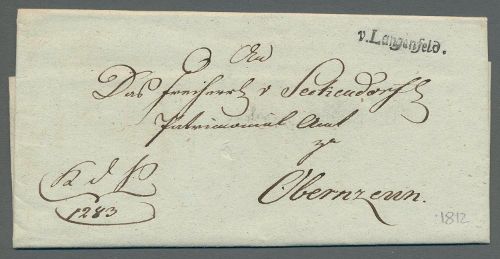 v. Langenfeld.
An
Das Freiherrl v Seckendorfl
Patrimonial Amt
zu
Obernzenn.
K d P
1283
1812